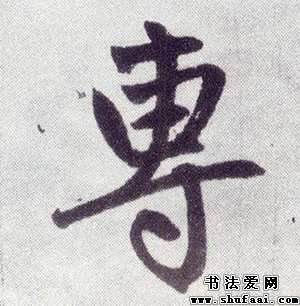 專
书法爱网
www.shufaai.com